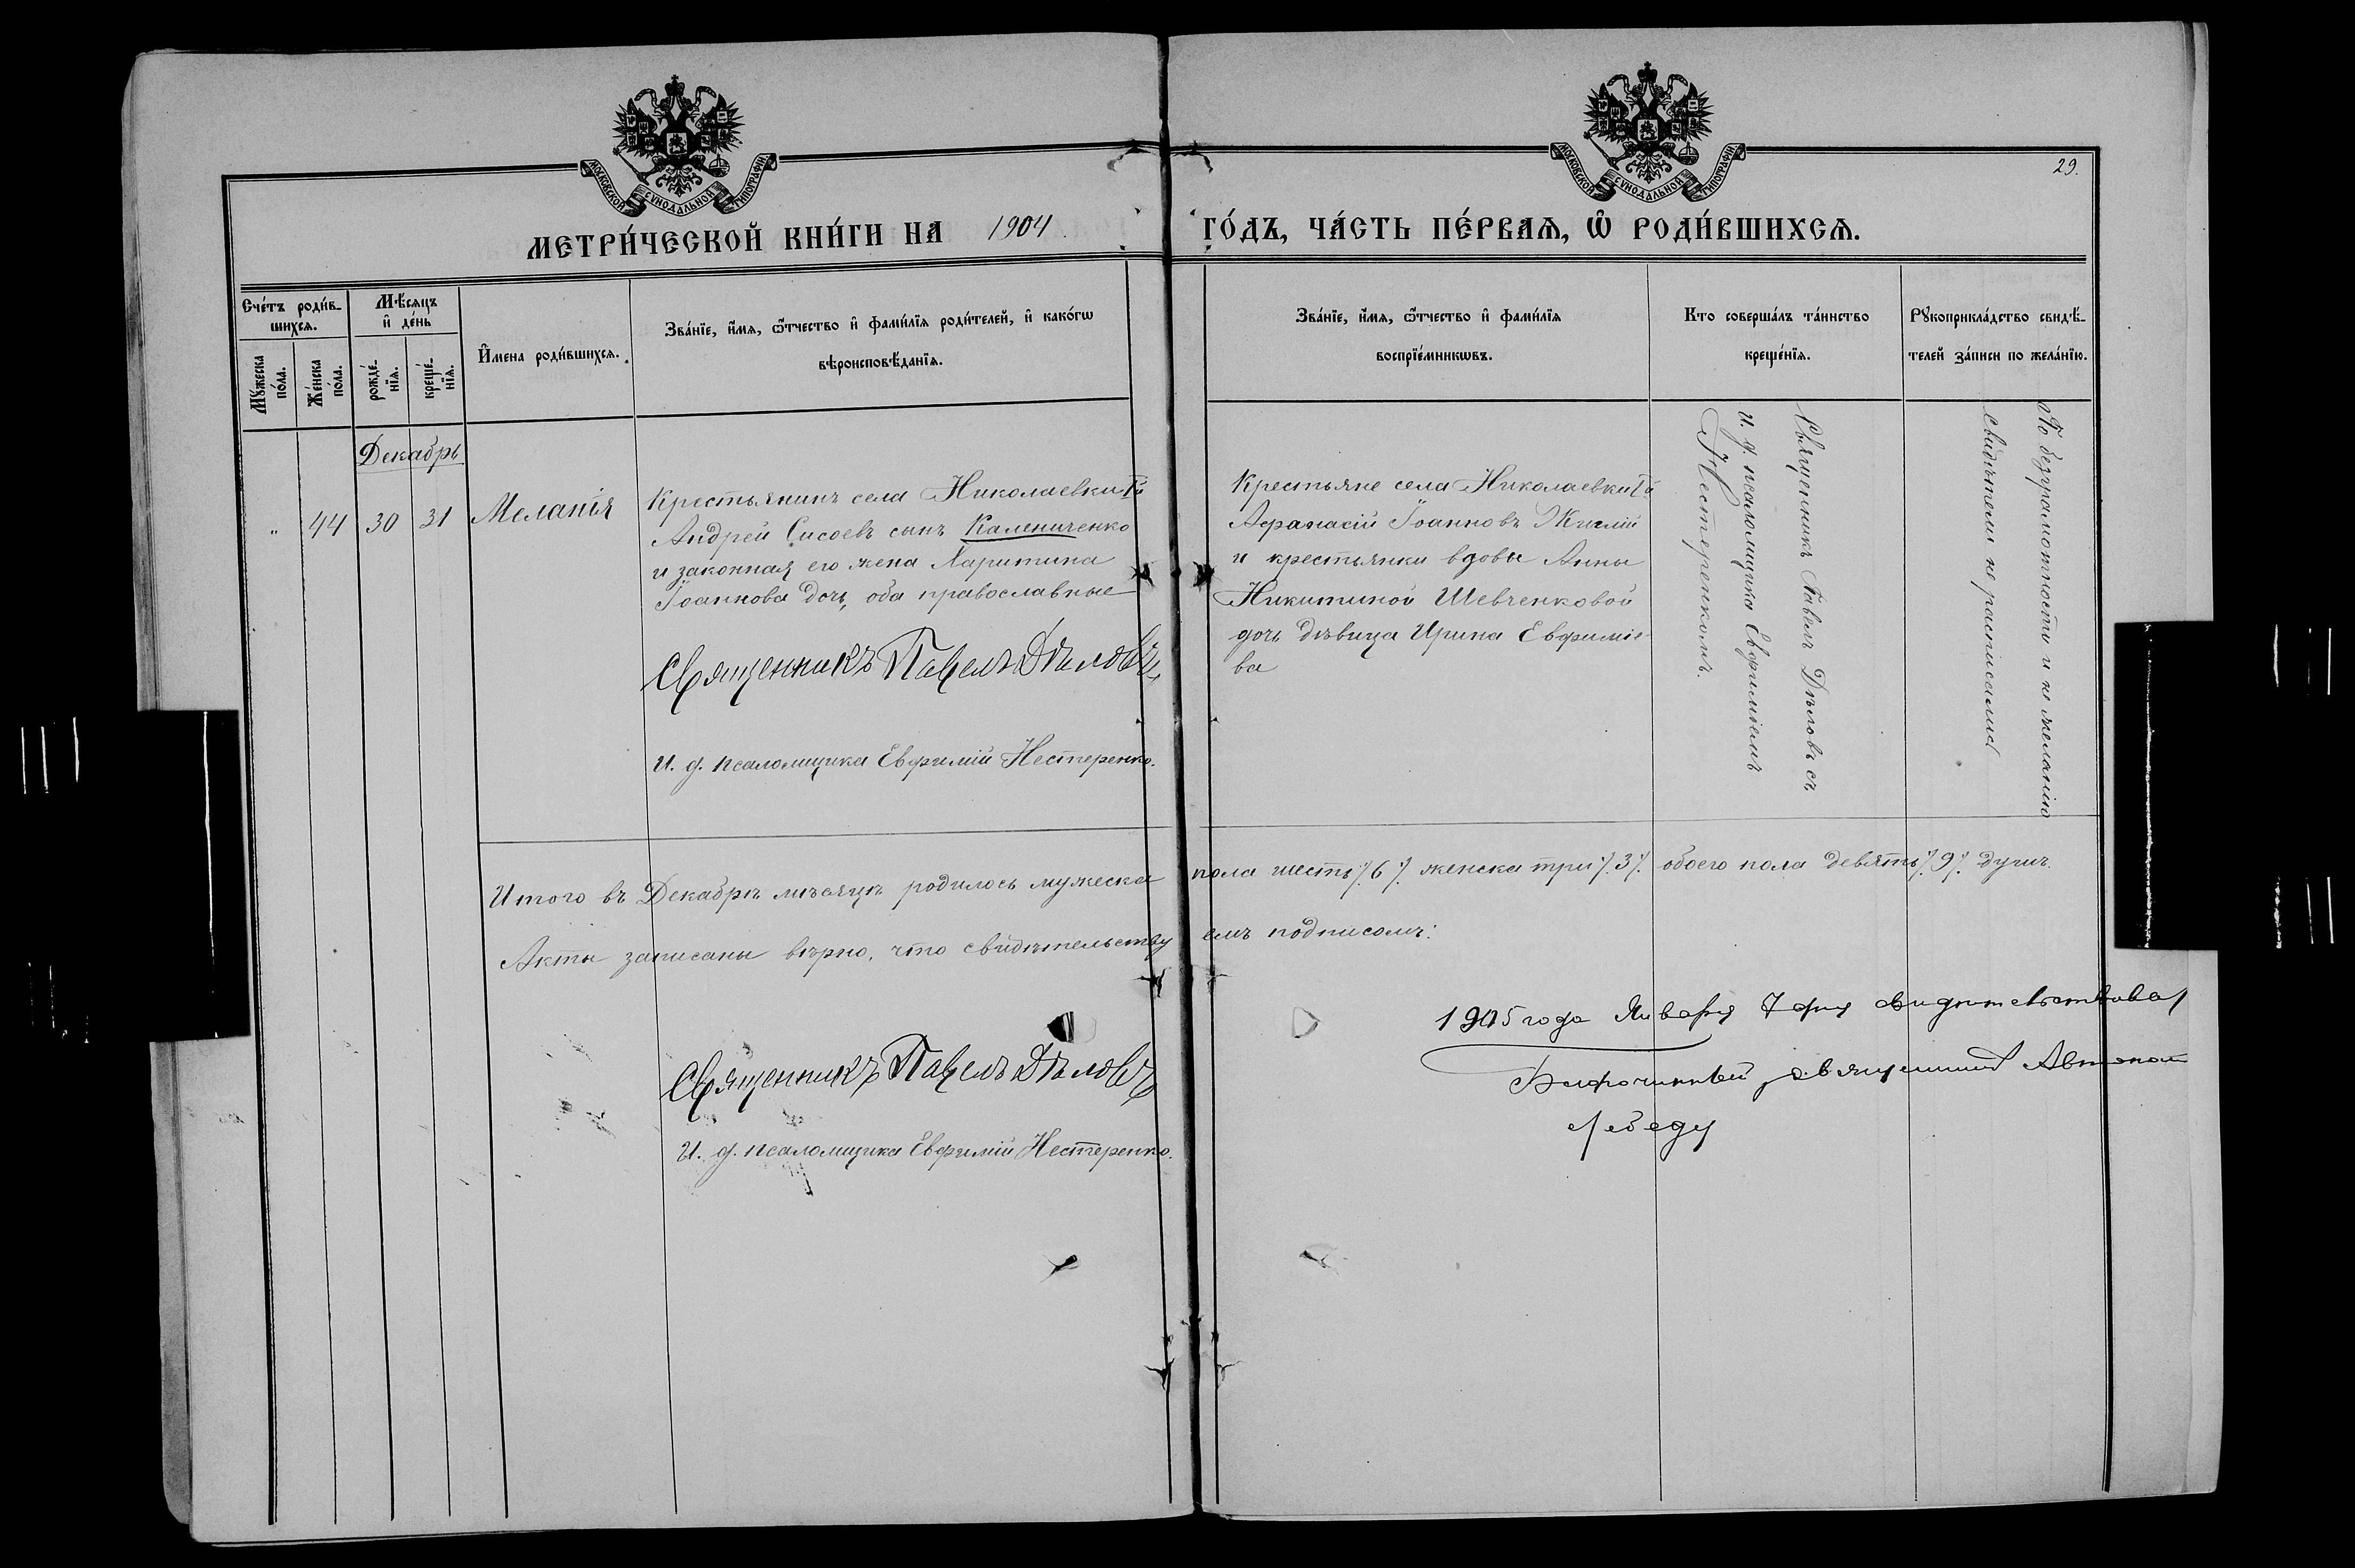 МОСКОВСКОЙ СѴНОДАЛЬНОЙ ТИПОГРАФІИ
МОСКОВСКОЙ СѴНОДАЛЬНОЙ ТИПОГРАФІИ
29.
МЕТРИ́ЧЕСКОЙ КНИ́ГИ НА 1904 ГО́ДЪ, ЧА́СТЬ ПЕ́РВАѦ, Ѽ РОДИ́ВШИХСѦ.
Сче́тъ роди́в-
шихсѧ.
Мꙋ́жеска
по́ла.
Же́нска
по́ла.
Мѣ́сѧцъ
и҆ де́нь
рожде́-
нїѧ.
креще́-
нїѧ.
И҆мена роди́вшихсѧ.
Зва́нїе, и҆́мѧ, ѻ҆́тчество и҆ фами́лїѧ роди́телей, и҆ како́гѡ
вѣроисповѣ́данїѧ.
Зва́нїе, и҆́мѧ, ѻ҆́тчество и҆ фами́лїѧ
воспрїе́мникѡвъ.
Кто соверша́лъ та́инство
креще́нїѧ.
Рꙋкоприкла́дство свидѣ́-
телей за́писи по жела́нїю.
Декабрь
" 44 30 31 Меланія
Крестьянинъ села Николаевки Iй
Андрей Сисоевъ сынъ Калениченко
и законная его жена Харитина
Іоаннова дочь, оба православные
Священникъ Павелъ Дѣловъ
И. д. псаломщика Евфимій Нестеренко.
Крестьяне села Николаевки Iй
Афанасій Іоанновъ
и крестьянки вдовы Анны
Никитиной Шевченковой
дочь дѣвица Ирина Евфиміе-
ва
Священникъ Павелъ Дѣловъ съ
и. д. псаломщика Евфиміемъ
Нестеренкомъ.
По безграмотности и не желанію
свидѣтели не росписались
Итого въ Декабрѣ мѣсяцѣ родилось мужеска пола шесть ⁒ 6 ⁒ женска три ⁒ 3 ⁒ обоего пола девять ⁒ 9 ⁒ душъ.
Акты записаны вѣрно, что свидѣтельствуемъ подписомъ:
Священникъ Павелъ Дѣловъ
И. д. псаломщика Евфимій Нестеренко.
1905 года Января 7 дня свидѣтельствовал
Благочинный священникъ